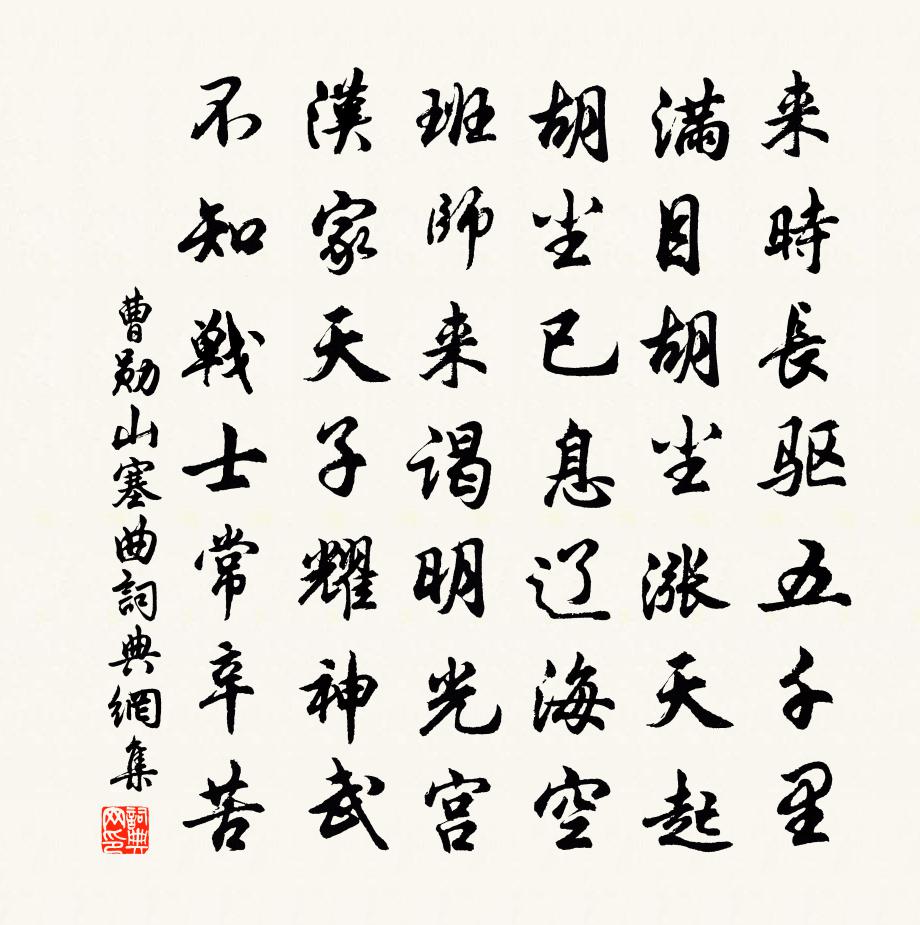 来時長驱五千里
满目胡尘涨天起
胡尘已息辽海空
班师来谒明光宫
漢家天子耀神武
不知戦士常辛苦
曹勋山塞曲詞典網集
詞典
网印